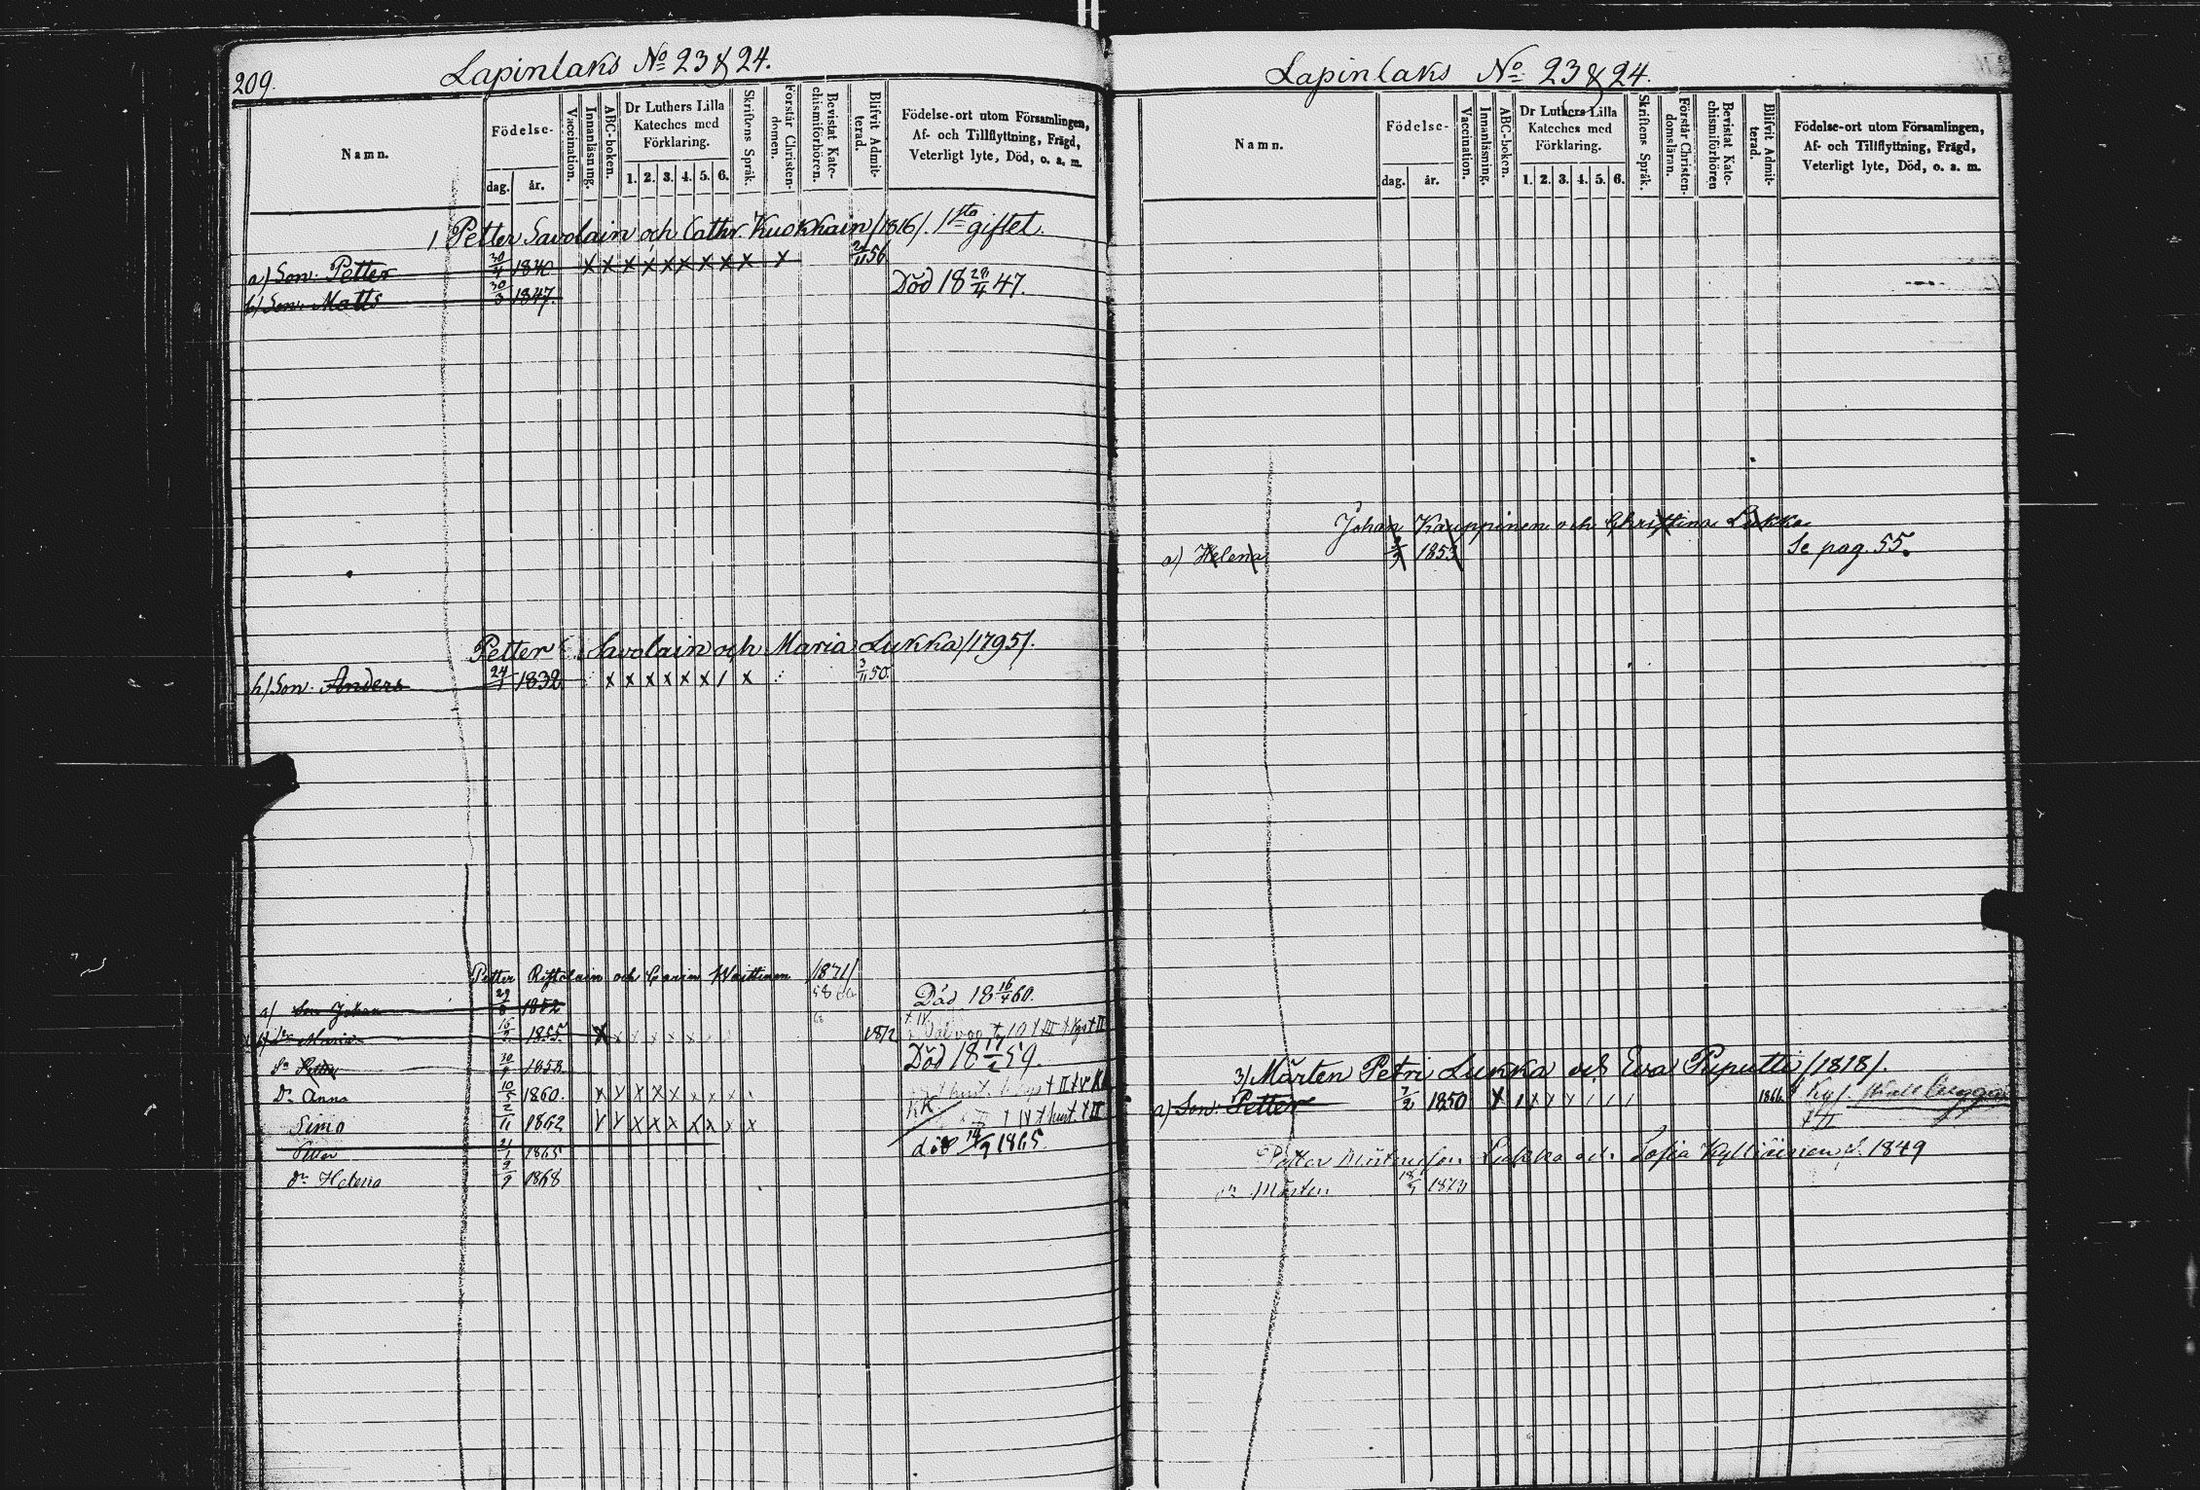 209.
Lapinlaks No 23 & 24.
Namn.
Födelse-
dag. år.
Vaccination.
Innanläsning.
ABC-boken.
Dr Luthers Lilla
Kateches med
Förklaring.
1. 2. 3. 4. 5. 6.
Skriftens Språk.
Förstår Christen-
domen.
Bevistat Kate-
chismiförhören.
Blifvit Admit-
terad.
Födelse-ort utom Församlingen,
Af- och Tillflyttning, Frägd,
Veterligt lyte, Död, o. a. m.
1 Petter Savolain och Cathr. Kuokkain /1816/. 1sta giftet.
a) Son. Petter 30/4 1840 x x x x x x x x x x 2/11 56
b) Son. Matts 30/3 1847. Död 18 28/4 47.
Petter Savolain och Maria Lukka /1795/.
h) Son. Anders 24/1 1832 x x x x x x / x 3/11 50.
Petter och Carin 1821/
a) Son Johan 29/8 1852 Död 18 16/4 60.
Maria 1855. x 1872
Sn Petter 30/1 1858 Död 18 59.
Dr Anna 10/5 1860. x y x x x x x x
Simo 2/11 1862 Y Y x x x x x x x
Petter 21/1 1865 död 14/9 1865.
dr Helena 9/9 1868
Lapinlaks No 23 & 24.
Namn.
Födelse-
dag. år.
Vaccination.
Innanläsning.
ABC-boken.
Dr Luthers Lilla
Kateches med
Förklaring.
1. 2. 3. 4. 5. 6.
Skriftens Språk.
Förstår Christen-
domsläran.
Bevistat Kate-
chismiförhören
Blifvit Admit-
terad.
Födelse-ort utom Församlingen,
Af- och Tillflyttning, Frägd,
Veterligt lyte, Död, o. s. m.
Johan Kauppinen och Christina Lukka
a) Helena 1853 Se pag. 55.
3/ Mårten Petri Lukka och Eva Puputti /1818/.
a) Son. Petter 7/2 1850 x
Petter Mårtensson Lukka och Sofia 1849
Mårten 18/5